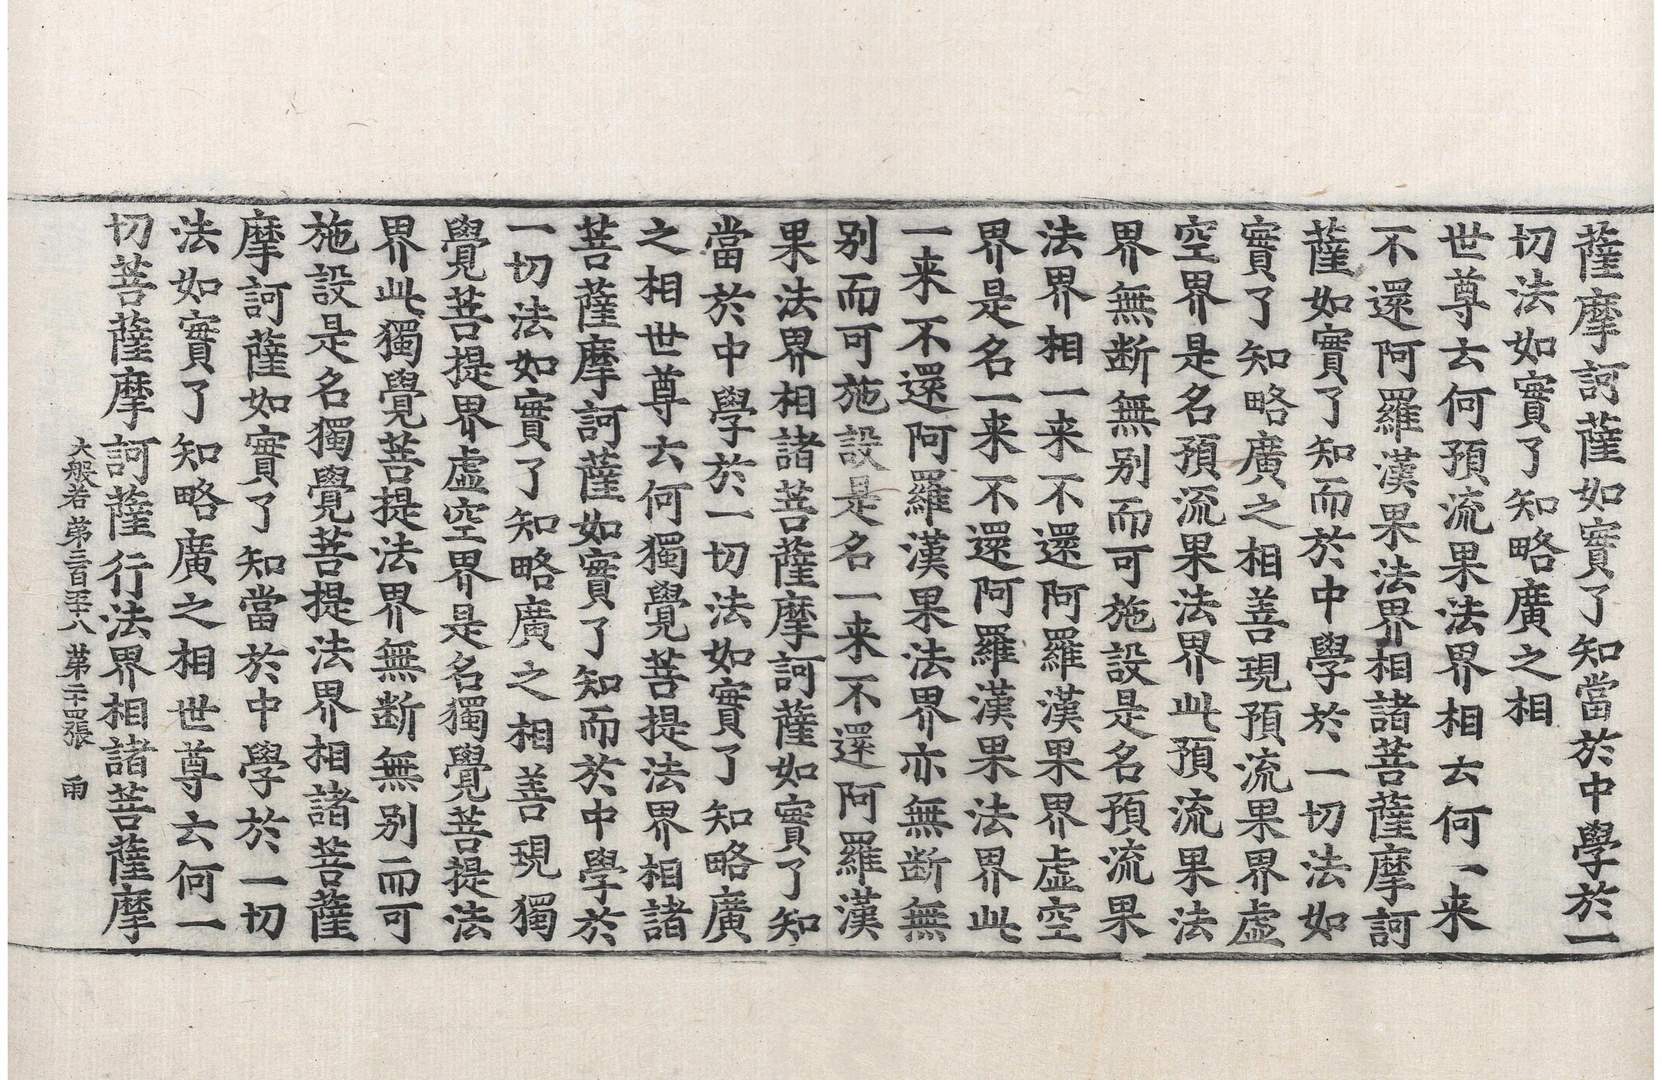 薩摩訶薩如實了知當於中學於一
切法如實了知略廣之相
世尊云何預流果法界相云何一来
不還阿羅漢果法界相諸菩薩摩訶
薩如實了知而於中學於一切法如
實了知略廣之相善現預流果界虛
空界是名預流果法界此預流果法
界無断無别而可施設是名預流果
法界相一来不還阿羅漢果界虛空
界是名一来不還阿羅漢果法界此
一来不還阿羅漢果法界亦無断無
别而可施設是名一来不還阿羅漢
果法界相諸菩薩摩訶薩如實了知
當於中學於一切法如實了知略廣
之相世尊云何獨覺菩提法界相諸
菩薩摩訶薩如實了知而於中學於
一切法如實了知略廣之相善現獨
覺菩提界虛空界是名獨覺菩提法
界此獨覺菩提法界無断無别而可
施設是名獨覺菩提法界相諸菩薩
摩訶薩如實了知當於中學於一切
法如實了知略廣之相世尊云何一
切菩薩摩訶薩行法界相諸菩薩摩
大般若第三百五十八 第二十四張 雨